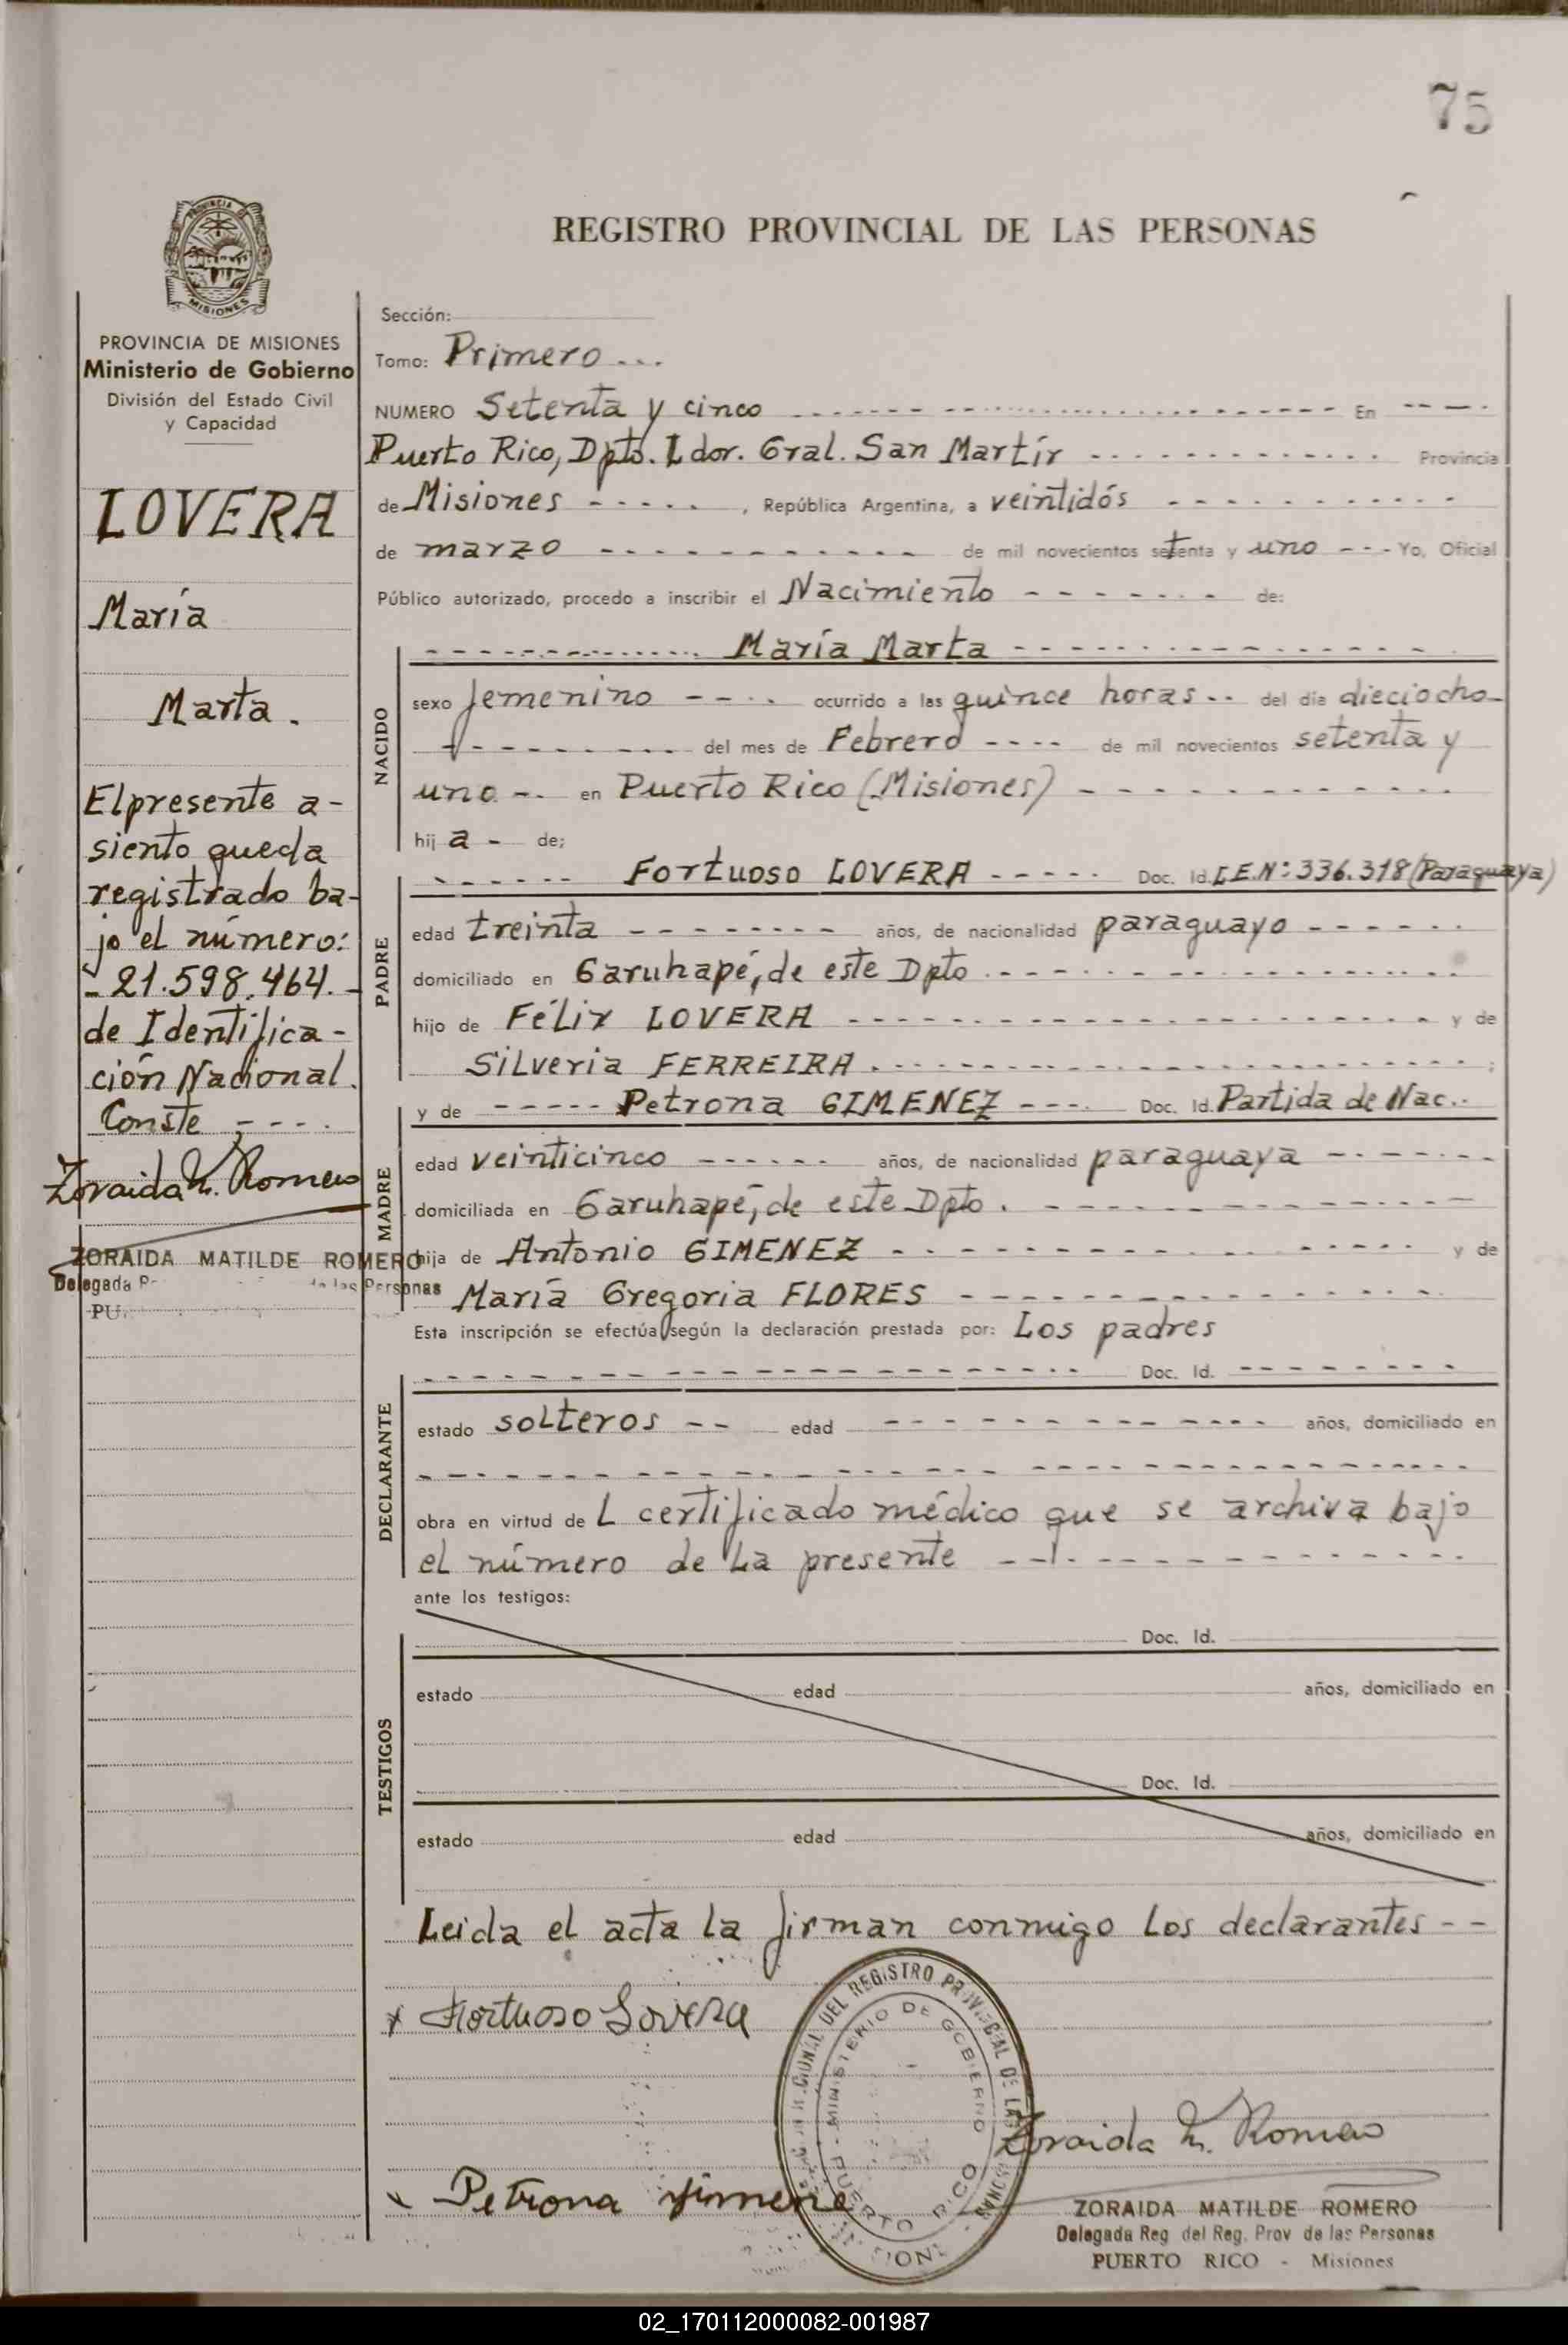 75
REGISTRO PROVINCIAL DE LAS PERSONAS
PROVINCIA DE MISIONES
Ministerio de Gobierno
División del Estado Civil
y Capacidad
LOVERA
María
Marta.
El presente a-
siento queda
registrado ba-
jo el número:
- 21.598.464. -
de Identifica-
ción Nacional.
Conste, - - - .
Zoraida M. Romero
ZORAIDA MATILDE ROMERO
Delegada de las Personas
Sección:
Tomo: Primero ...
NUMERO Setenta y cinco - - - - En - - - -
Puerto Rico, Dpto. Ldor. Gral. San Martín - - - - Provincia
de Misiones - - - - , República Argentina, a veintidós - - - -
de marzo - - - - de mil novecientos setenta y uno - - - Yo, Oficial
Público autorizado, procedo a inscribir el Nacimiento - - - - de:
NACIDO
- - - - María Marta - - - -
sexo femenino - - - - ocurrido a las quince horas - - del día dieciocho-
- - - - del mes de Febrero - - - - de mil novecientos setenta y
uno - . en Puerto Rico (Misiones) - - - -
hij a - de;
PADRE
- - - - Fortuoso LOVERA - - - - Doc. Id. C.E.N: 336.318 (Paraguaya)
edad treinta - - - - años, de nacionalidad paraguayo - - - -
domiciliado en Garuhapé, de este Dpto. - - - -
hijo de Félix LOVERA - - - - y de
Silveria FERREIRA. - - - - ;
MADRE
y de - - - - Petrona GIMENEZ - - - . Doc. Id. Partida de Nac. .
edad veinticinco - - - - años, de nacionalidad paraguaya - - - -
domiciliada en Garuhapé, de este Dpto. - - - -
hija de Antonio GIMENEZ - - - - y de
María Gregoria FLORES - - - -
Esta inscripción se efectúa según la declaración prestada por: Los padres
DECLARANTE
- - - - Doc. Id. - - - -
estado solteros - - edad - - - - años, domiciliado en
- - - -
obra en virtud de L certificado médico que se archiva bajo
el número de La presente - - - -
ante los testigos:
TESTIGOS
Doc. Id.
estado edad años, domiciliado en
Doc. Id.
estado edad años, domiciliado en
Leida el acta la firman conmigo los declarantes - -
x Fortuoso Lovera
DEL REGISTRO PROVINCIAL DE LAS PERSONAS
MINISTERIO DE GOBIERNO
PUERTO RICO
Zoraida M. Romero
x Petrona Jimene
ZORAIDA MATILDE ROMERO
Delegada Reg. del Reg. Prov. de las Personas
PUERTO RICO - Misiones
02_170112000082-001987